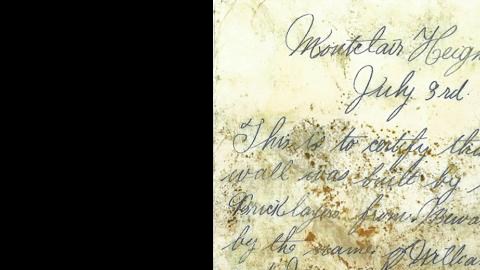 Montclair Heigh
July 3rd.
This is to certify tha
wall was built by
Bricklayers from Newar
by the name of Willia